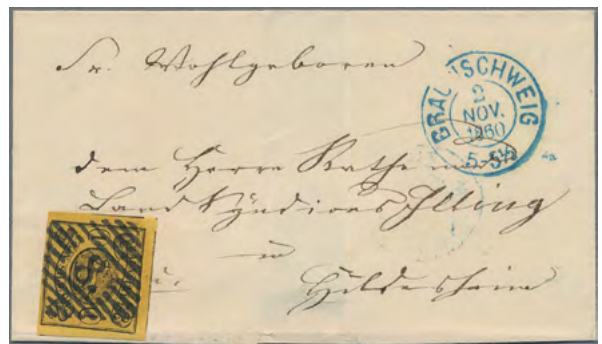 Sr. Wohlgeboren
BRAUNSCHWEIG
2
NOV.
1860
5-5½
dem Herrn Rathe und
Land Syndicus Illing
in
Hildesheim
8